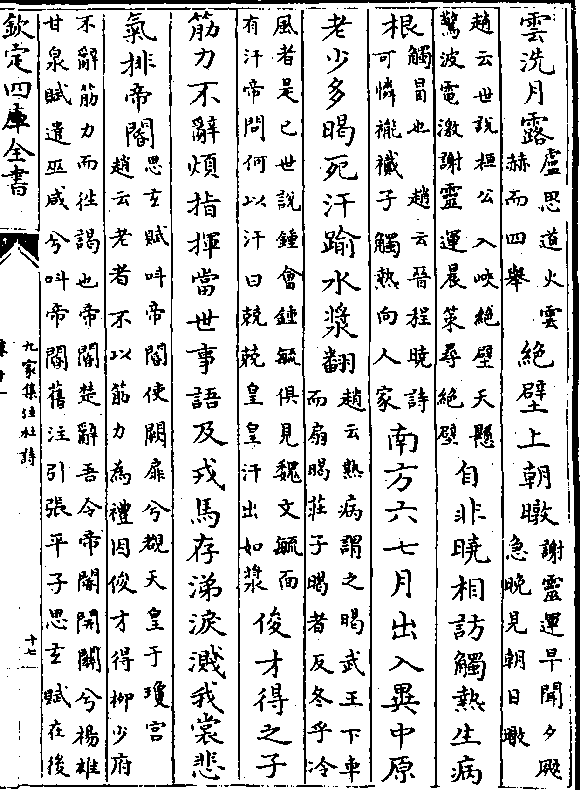 雲洗月露盧思道火雲
赫而四舉
絶壁上朝暾謝靈運早聞夕飈
急晚見朝日暾
趙云世說桓公入峽絶壁天懸
驚波電激謝靈運晨策尋絶壁
自非曉相訪觸熱生病
根觸冒也 趙云晉程曉詩
可憐襶子觸熱向人家
南方六七月出入異中原
老少多暍死汗踰水漿翻趙云熱病謂之暍武王下車
而扇暍莊子暍者反冬乎冷
風者是已世說鍾會鍾毓俱見魏文毓面
有汗帝問何以汗曰兢兢皇皇汗出如漿
俊才得之子
筋力不辭煩指揮當世事語及戎馬存涕淚濺我裳悲
氣排帝閽思玄賦叫帝閽使闢扉兮覿天皇于瓊宫
趙云老者不以筋力為禮因俊才得柳少府
不辭筋力而徃謁也帝閽楚辭吾令帝閽開闗兮楊雄
甘泉賦遣巫咸兮叫帝閽舊注引張平子思玄賦在後
欽定四庫全書
九家集注杜詩
十七